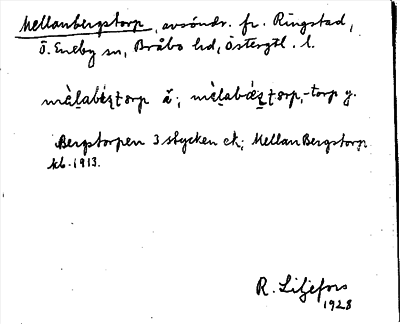 Mellanbergstorp, avsöndr. fr. Ringstad,
Ö. Eneby sn, Bråbo hd, Östergtl. l.
mèl̠abǽṣṭorp ǎ; mèl̠abǽṣṭorp, -torp y.
Bergstorpen 3 stycken ek; MellanBergstorp
kb. 1913.
R. Liljefors
1928